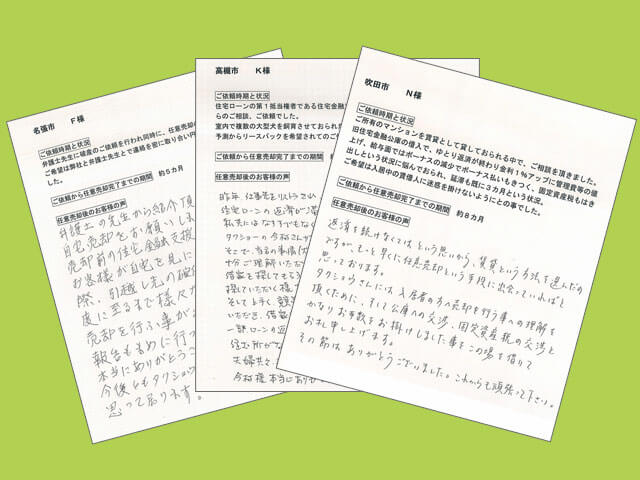 名張市 F様
ご依頼時期と状況
弁護士先生に破産のご依頼を行われ同時に、任意売却の
ご希望は弊社と弁護士先生とで連絡を密に取り合い円
した。
ご依頼から任意売却完了までの期間 約5カ月
任意売却後のお客様の声
弁護士の先生から紹介頂
自宅売却をお願いしま
売却前の住宅金融支援
お客様が自宅を見に
際、引越し先の確保
度に至るまで様々
売却を行う事が
報告もまめに行っ
本当にありがとう
今後ともタクショウ
思って居ります。
高槻市 K様
ご依頼時期と状況
住宅ローンの第1抵当権者である住宅金融
らのご相談、ご依頼でした。
室内で複数の大型犬を飼育させておられ
予測からリースバックを希望されてのご
ご依頼から任意売却完了までの期間
任意売却後のお客様の声
昨年 仕事先をリストラされ
住宅ローンの返済が滞
私共にはなすすべもなく
タクショーの今桜さんが
そこで、当方の事情
十分ご理解いただいて
借家を探してもら
探していただく様
そして上手く競売
いただき、借家
一部ローンの返
住む所がな
夫婦共々
今桜様 本当にありが
吹田市 N様
ご依頼時期と状況
ご所有のマンションを賃貸として貸しておられる中で、ご相談を頂きました。
旧住宅金融公庫の借入で、ゆとり返済が終わり金利1%アップに管理費等の値
上げ、給与面ではボーナスの減少でボーナス払いもきつく、固定資産税もはき
出しという状況に悩んでおられ、延滞も既に3カ月という状況。
ご希望は入居中の賃借人に迷惑を掛けないようにとの事でした。
ご依頼から任意売却完了までの期間 約8カ月
任意売却後のお客様の声
返済を続けなくてはという思いから、賃貸という方法を選んだの
ですが、もっと早くに任意売却という手段に出会っていればと
思っております。
タクショウさんには、入居者の方への売却を行う事への理解を
頂くために、そして公庫への交渉、固定資産税の交渉と
かなりお手数をお掛けしました事をこの場を借りて
お礼申し上げます。
その節はありがとうございました。これからも頑張って下さい。